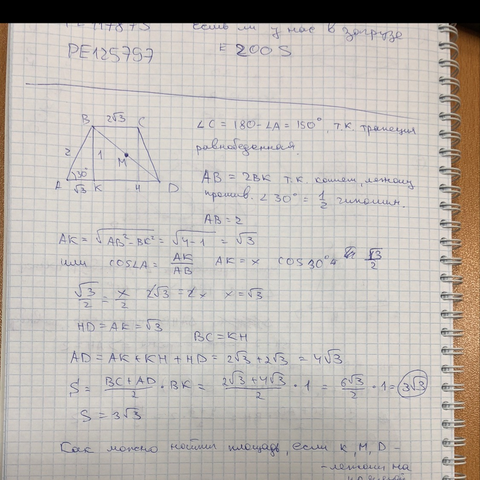 если ли у нас в загрузе
PE125797 E 200S
B 2√3 C
2 1 M
A 30° √3 K H D
∠C = 180 - ∠A = 150°, т.к. трапеция
равнобедренная.
AB = 2BK т.к. катет, лежащ
против. ∠ 30° = 1/2 гипотен.
AB = 2
AK = √AB² - BK² = √4 - 1 = √3
или cos∠A = AK/AB AK = x cos 30° √3/2
√3/2 = x/2 2√3 = 2x x = √3
HD = AK = √3
BC = KH
AD = AK + KH + HD = 2√3 + 2√3 = 4√3
S = BC + AD/2 · BK = 2√3 + 4√3/2 · 1 = 6√3/2 · 1 = 3√3
S = 3√3
Как можно найти площадь, если K, M, D -
- лежат на